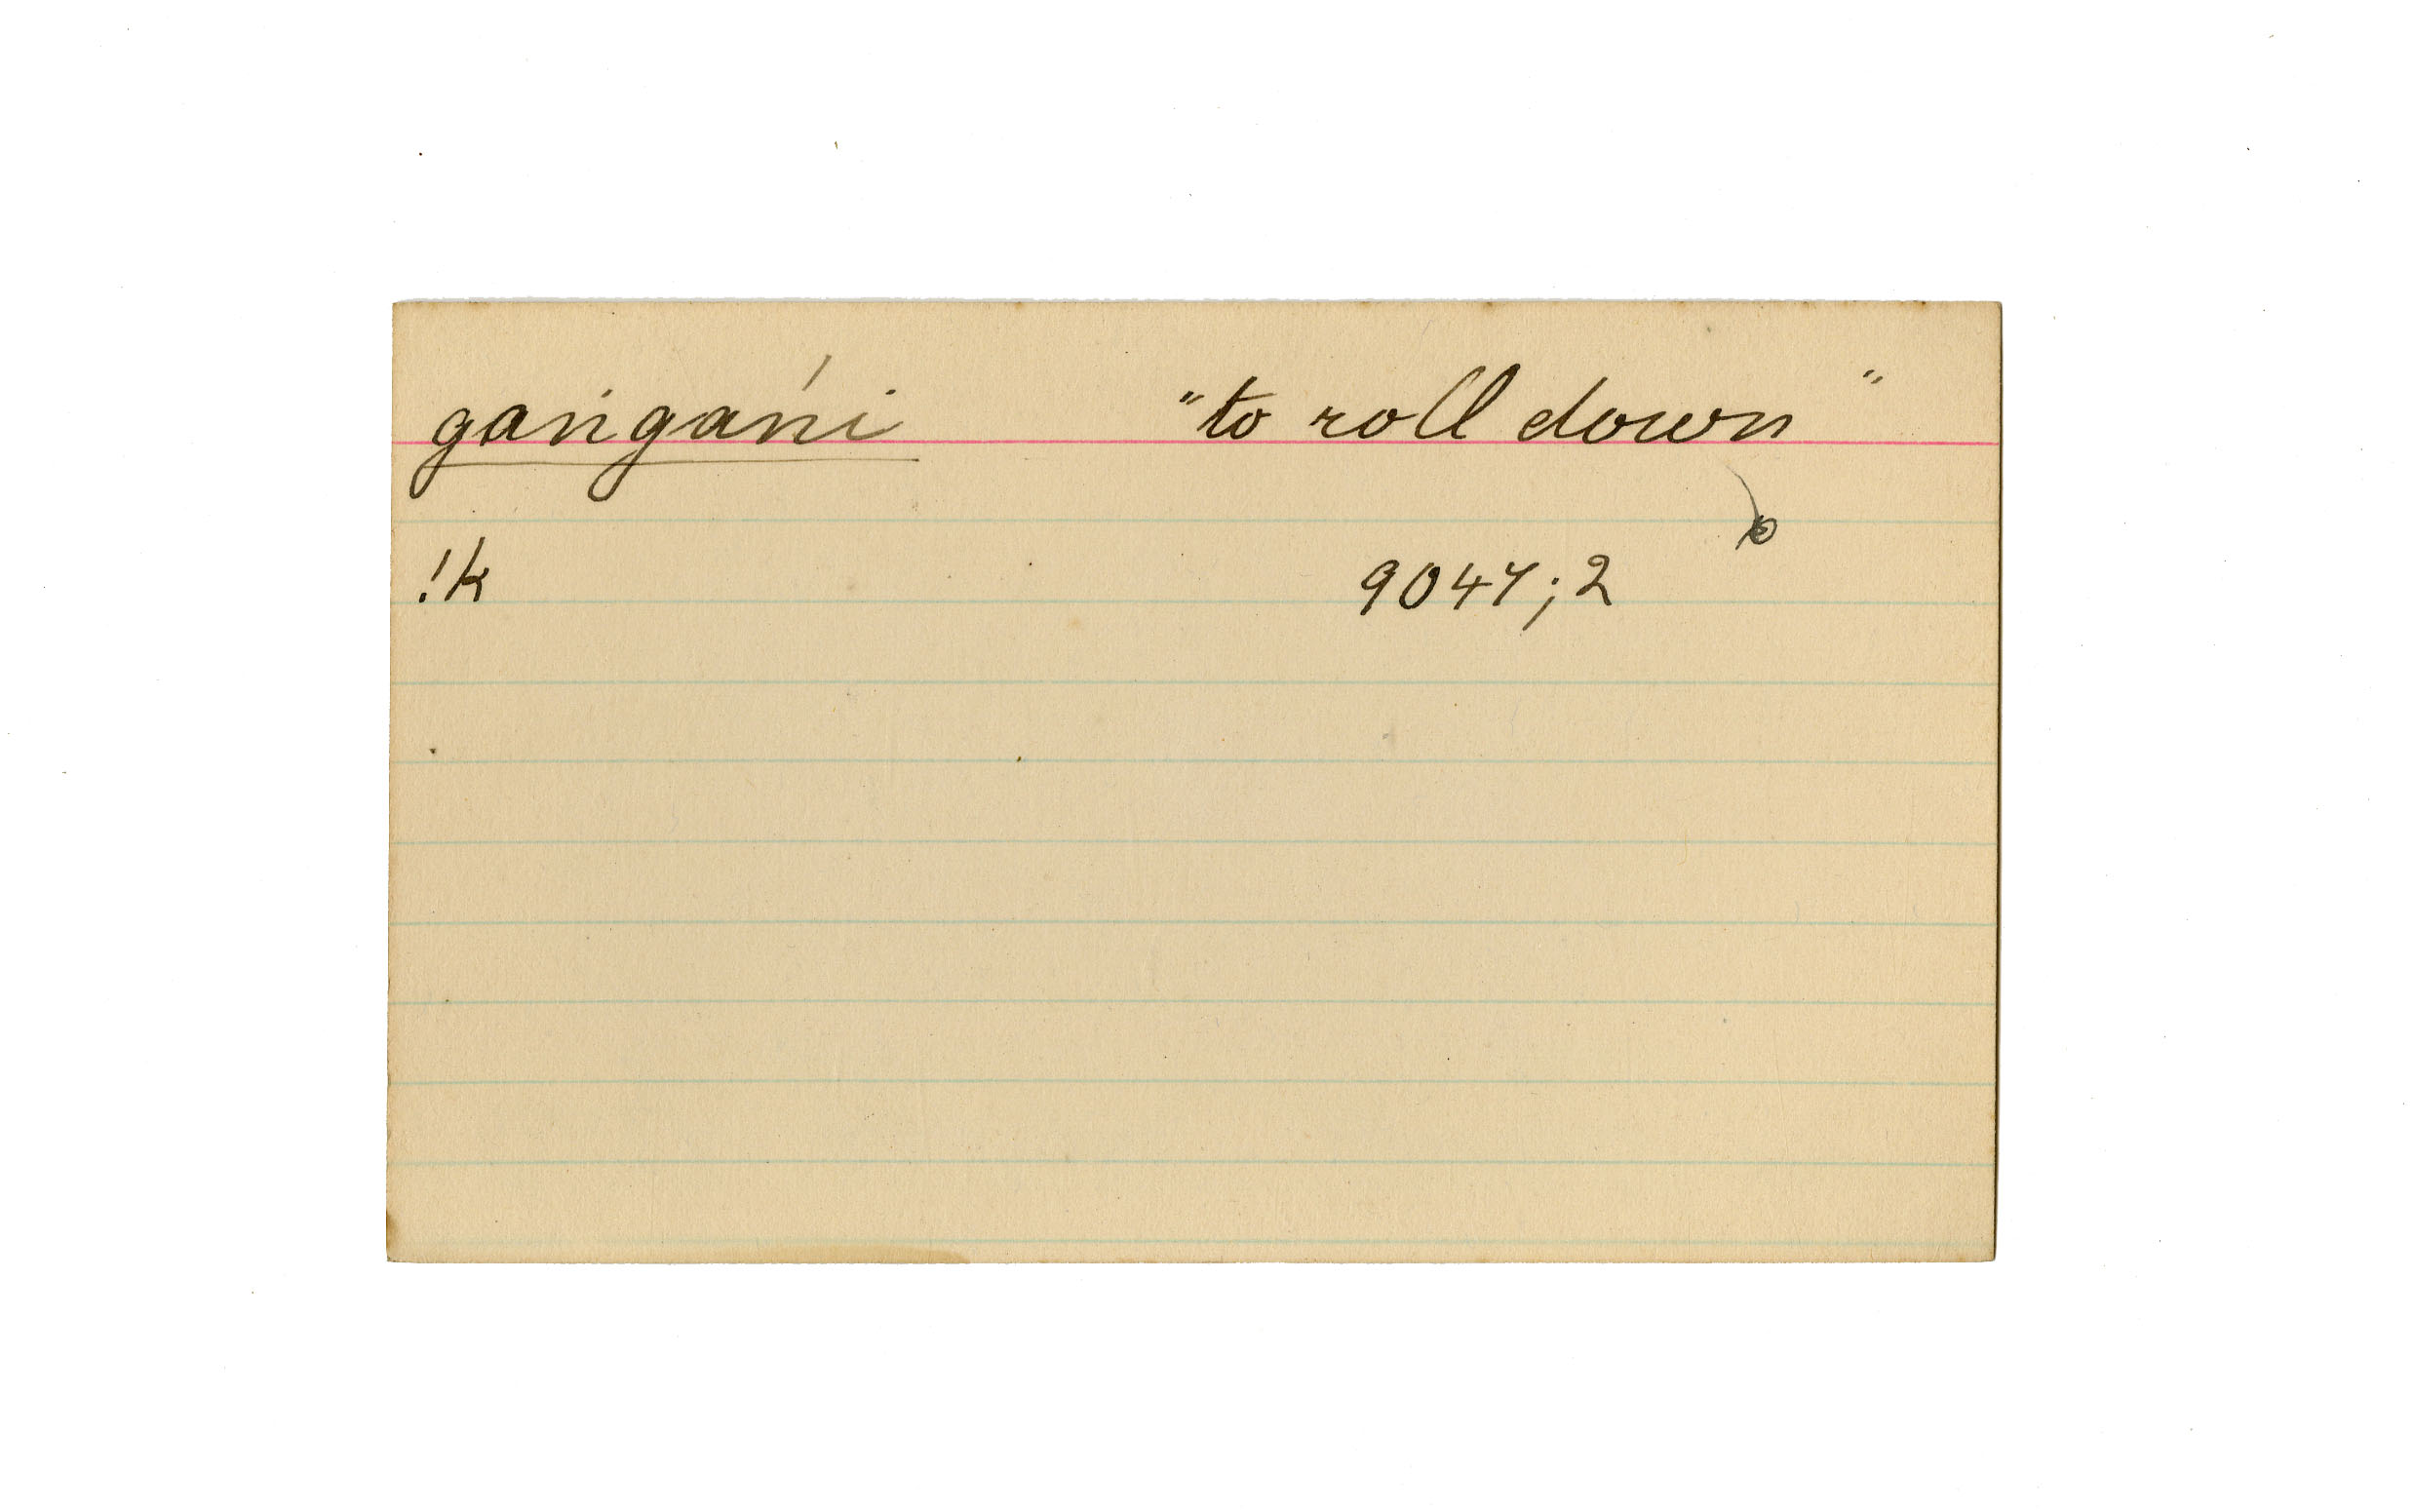 gaṅga'ni "to roll down"
!k 9047;2